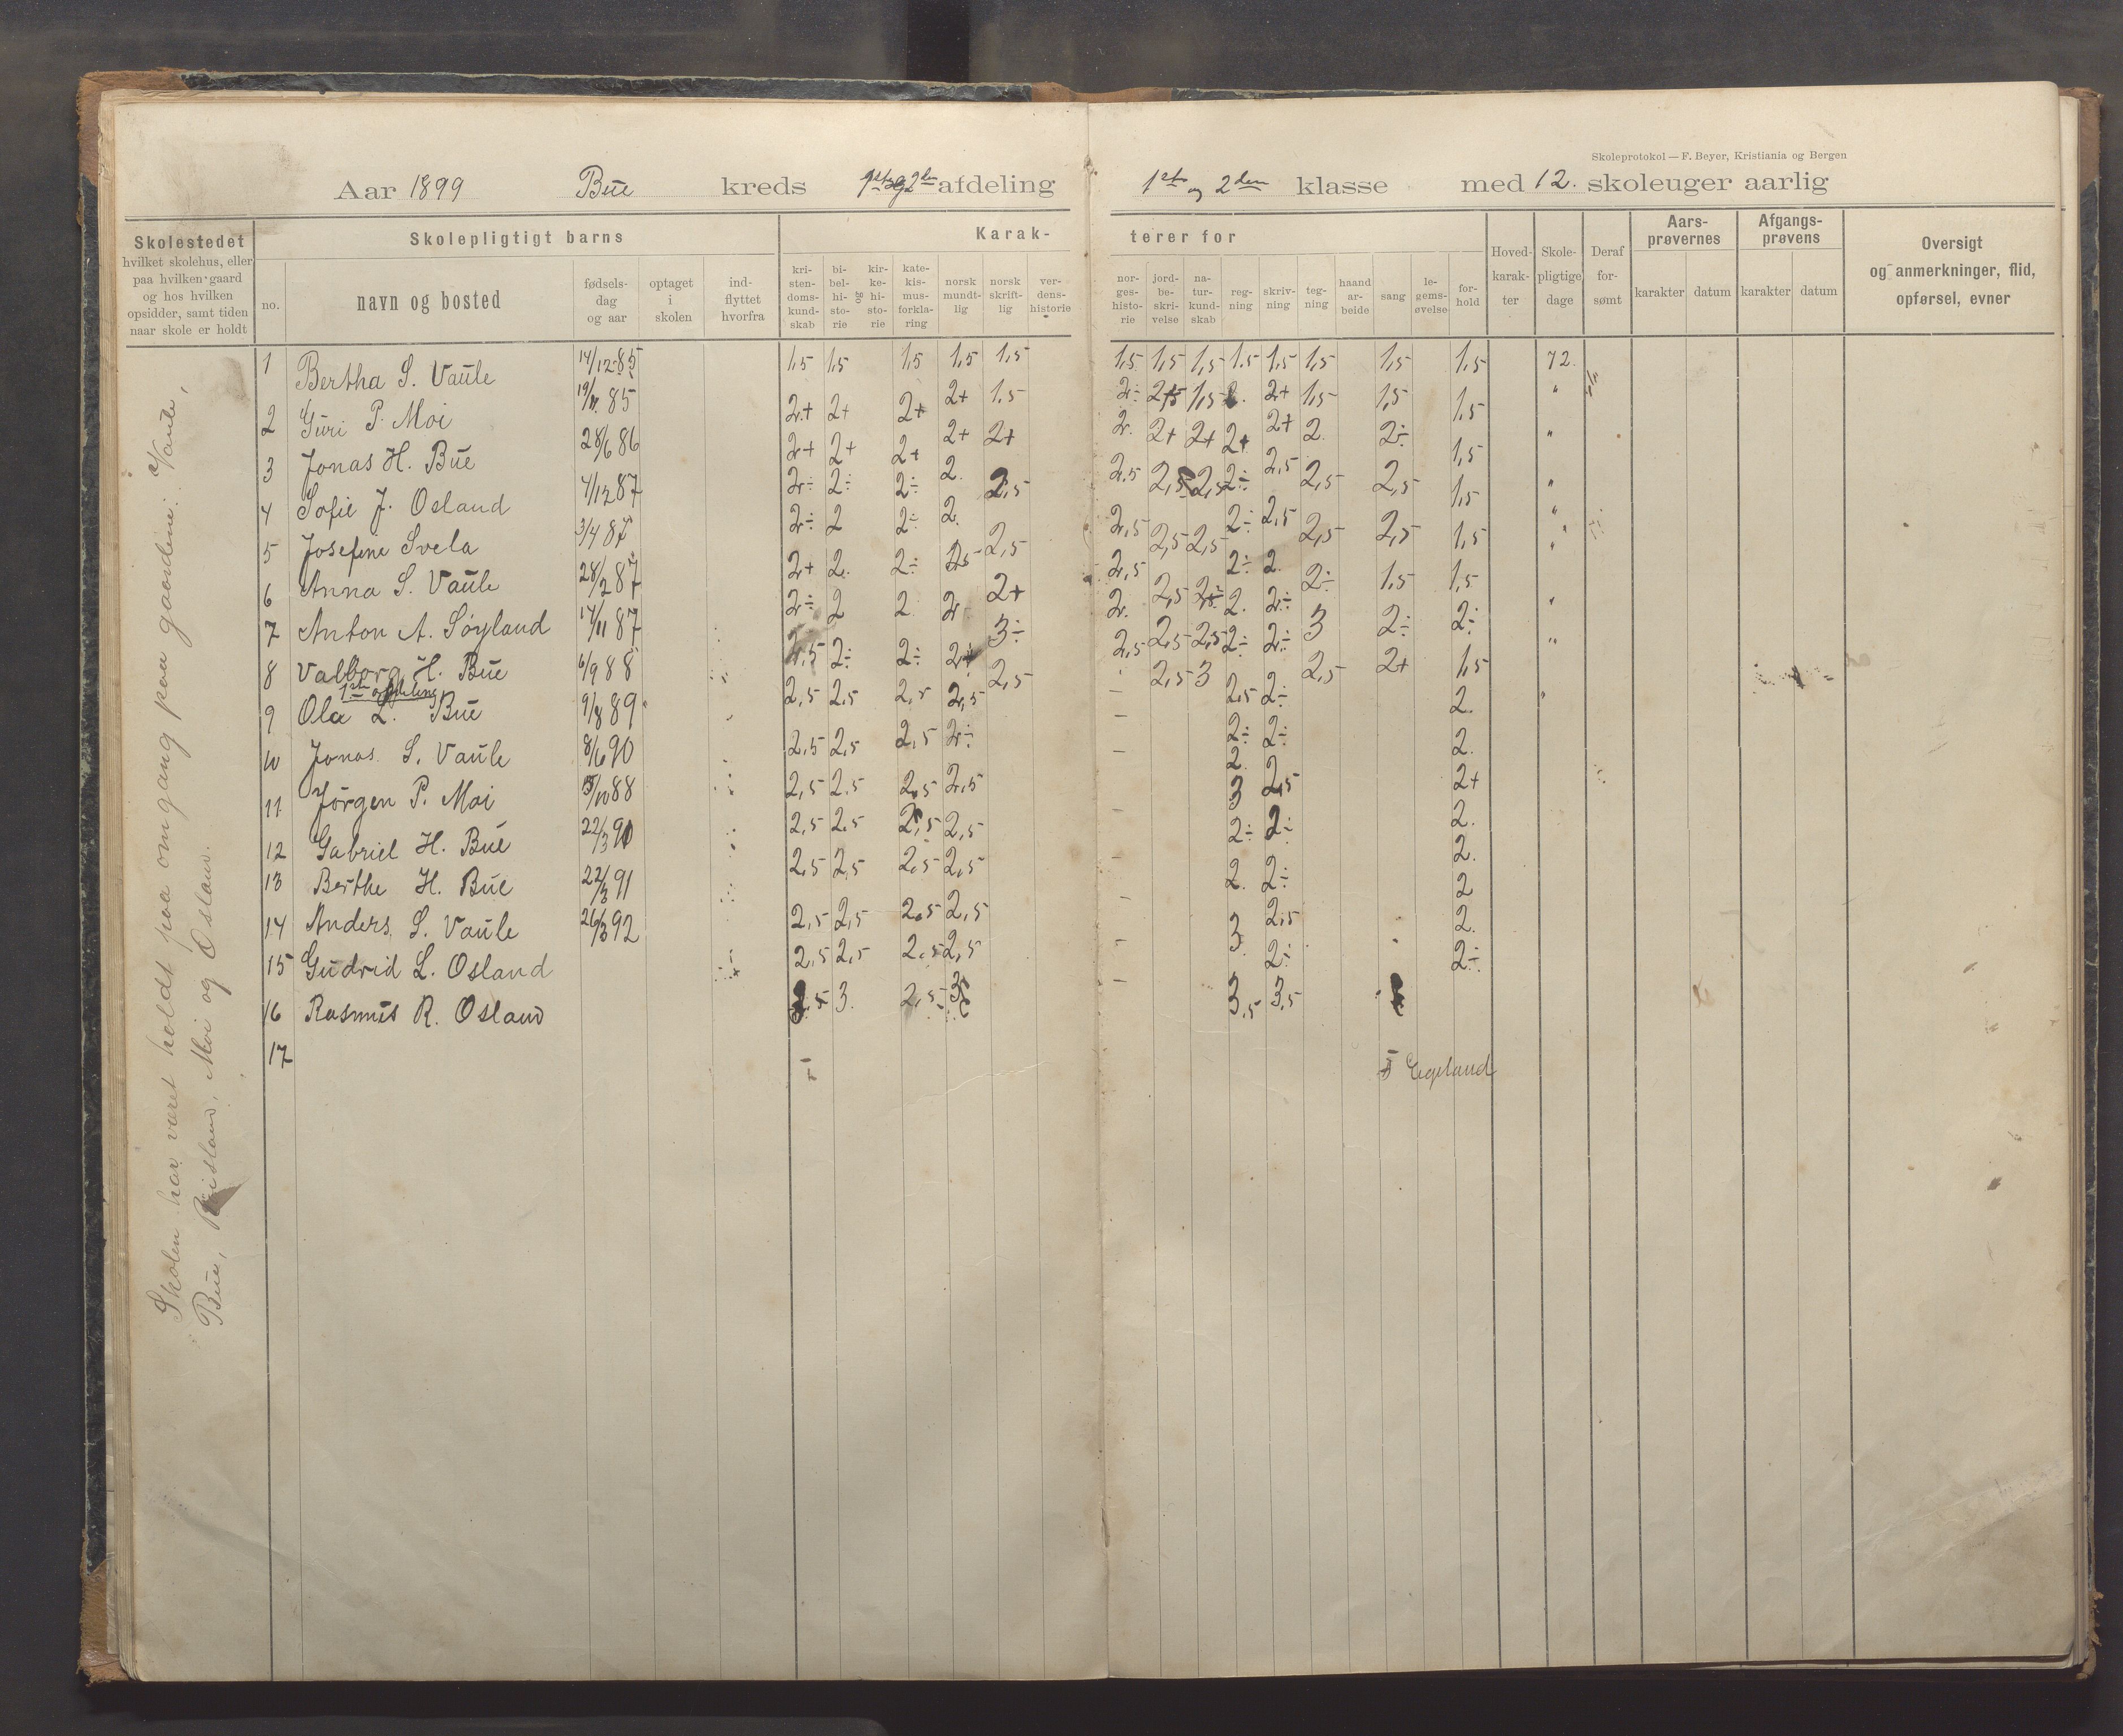 Skoleprotokol — F. Beyer, Kristiania og Bergen
Aar 1899 Bue kreds afdeling 1ste og 2den klasse med 12. skoleuger aarlig
Skolestedet
hvilket skolehus, eller
paa hvilken gaard
og hos hvilken
opsidder, samt tiden
naar skole er holdt
Skolepligtigt barns
no.
navn og bosted
fødsels-
dag
og aar
optaget
i
skolen
ind-
flyttet
hvorfra
Karak-
kri-
sten-
doms-
kund-
skab
bi-
bel-
hi-
sto-
rie
og
kir-
ke-
hi-
sto-
rie
kate-
kis-
mus-
forkla-
ring
norsk
mundt-
lig
norsk
skrift-
lig
ver-
dens-
historie
terer for
nor-
ges-
histo-
rie
jord-
be-
skri-
velse
na-
tur-
kund-
skab
reg-
ning
skriv-
ning
teg-
ning
haand
ar-
beide
sang
le-
gems-
øvelse
for-
hold
Hoved-
karak-
ter
Skole-
pligtige
dage
Deraf
for-
sømt
Aars-
prøvernes
karakter datum
Afgangs-
prøvens
karakter datum
Oversigt
og anmerkninger, flid,
opførsel, evner
Skolen har været holdt paa omgang paa gaardene: Vaule,
Bue, Risland, Moi og Osland.
1 Bertha S. Vaule 14/12 85 1,5 1,5 1,5 1,5 1,5 1,5 1,5 1,5 1,5 1,5 1,5 1,5 1,5 72.
2 Guri P. Moi 19/11 85 2+ 2+ 2+ 2+ 1,5 2÷ 1,5 2+ 1,5 1,5 1,5 "
3 Jonas H. Bue 28/6 86 2+ 2+ 2+ 2+ 2+ 2. 2+ 2+ 2+ 2+ 2. 2÷ 1,5 "
4 Sofie J. Osland 4/12 87 2÷ 2÷ 2÷ 2. 2,5 2,5 2,5 2,5 2÷ 2,5 2,5 2,5 1,5 "
5 Josefine Svela 3/4 87 2÷ 2 2÷ 2. 2,5 2,5 2,5 2,5 2÷ 2,5 2,5 2,5 1,5 "
6 Anna S. Vaule 28/2 87 2+ 2. 2÷ 2+ 2,5 2,5 2÷ 2. 2÷ 1,5 1,5 "
7 Anton A. Søyland 14/11 87 2÷ 2 2. 2 3÷ 2. 2,5 2,5 2. 2÷ 3 2÷ 2÷ "
8 Valborg H. Bue 6/9 88 2,5 2÷ 2÷ 2,5 2,5 2,5 3 2÷ 2÷ 2,5 2+ 1,5 "
1ste afdeling
9 Ola L. Bue 9/8 89 2,5 2,5 2,5 2,5 2,5 2÷ 2.
10 Jonas S. Vaule 8/6 90 2,5 2,5 2,5 2÷ 2÷ 2÷ 2.
11 Jørgen P. Moi 88 2,5 2,5 2,5 2,5 2. 2,5 2+
12 Gabriel H. Bue 22/3 90 2,5 2,5 2,5 2,5 3 2÷ 2.
13 Berthe H. Bue 22/3 91 2,5 2,5 2,5 2,5 2÷ 2÷ 2.
14 Anders S. Vaule 26/3 92 2,5 2,5 2,5 2,5 2. 2,5 2
15 Gudrid L. Osland 2,5 2,5 2,5 2,5 3. 2÷ 2.
16 Rasmus R. Osland 3. 2,5 3,5 3,5 2÷
17
Egeland